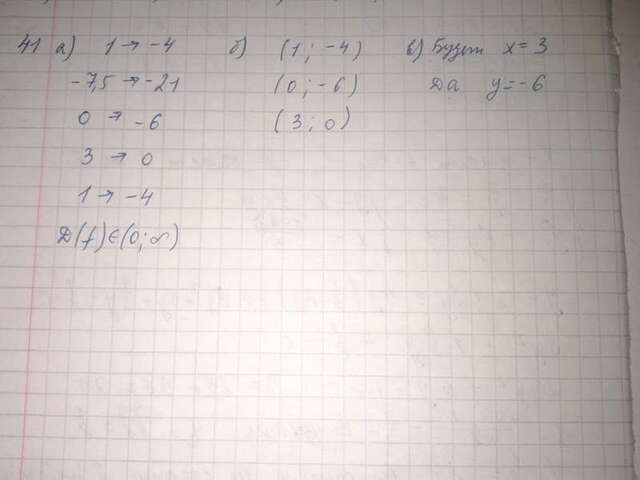 41 а) 1 → -4 б) (1 ; -4) в) Будет x = 3
-7,5 → -21 (0 ; -6) Да y = -6
0 → -6 (3 ; 0)
3 → 0
1 → -4
D(f)∈(0;∞)